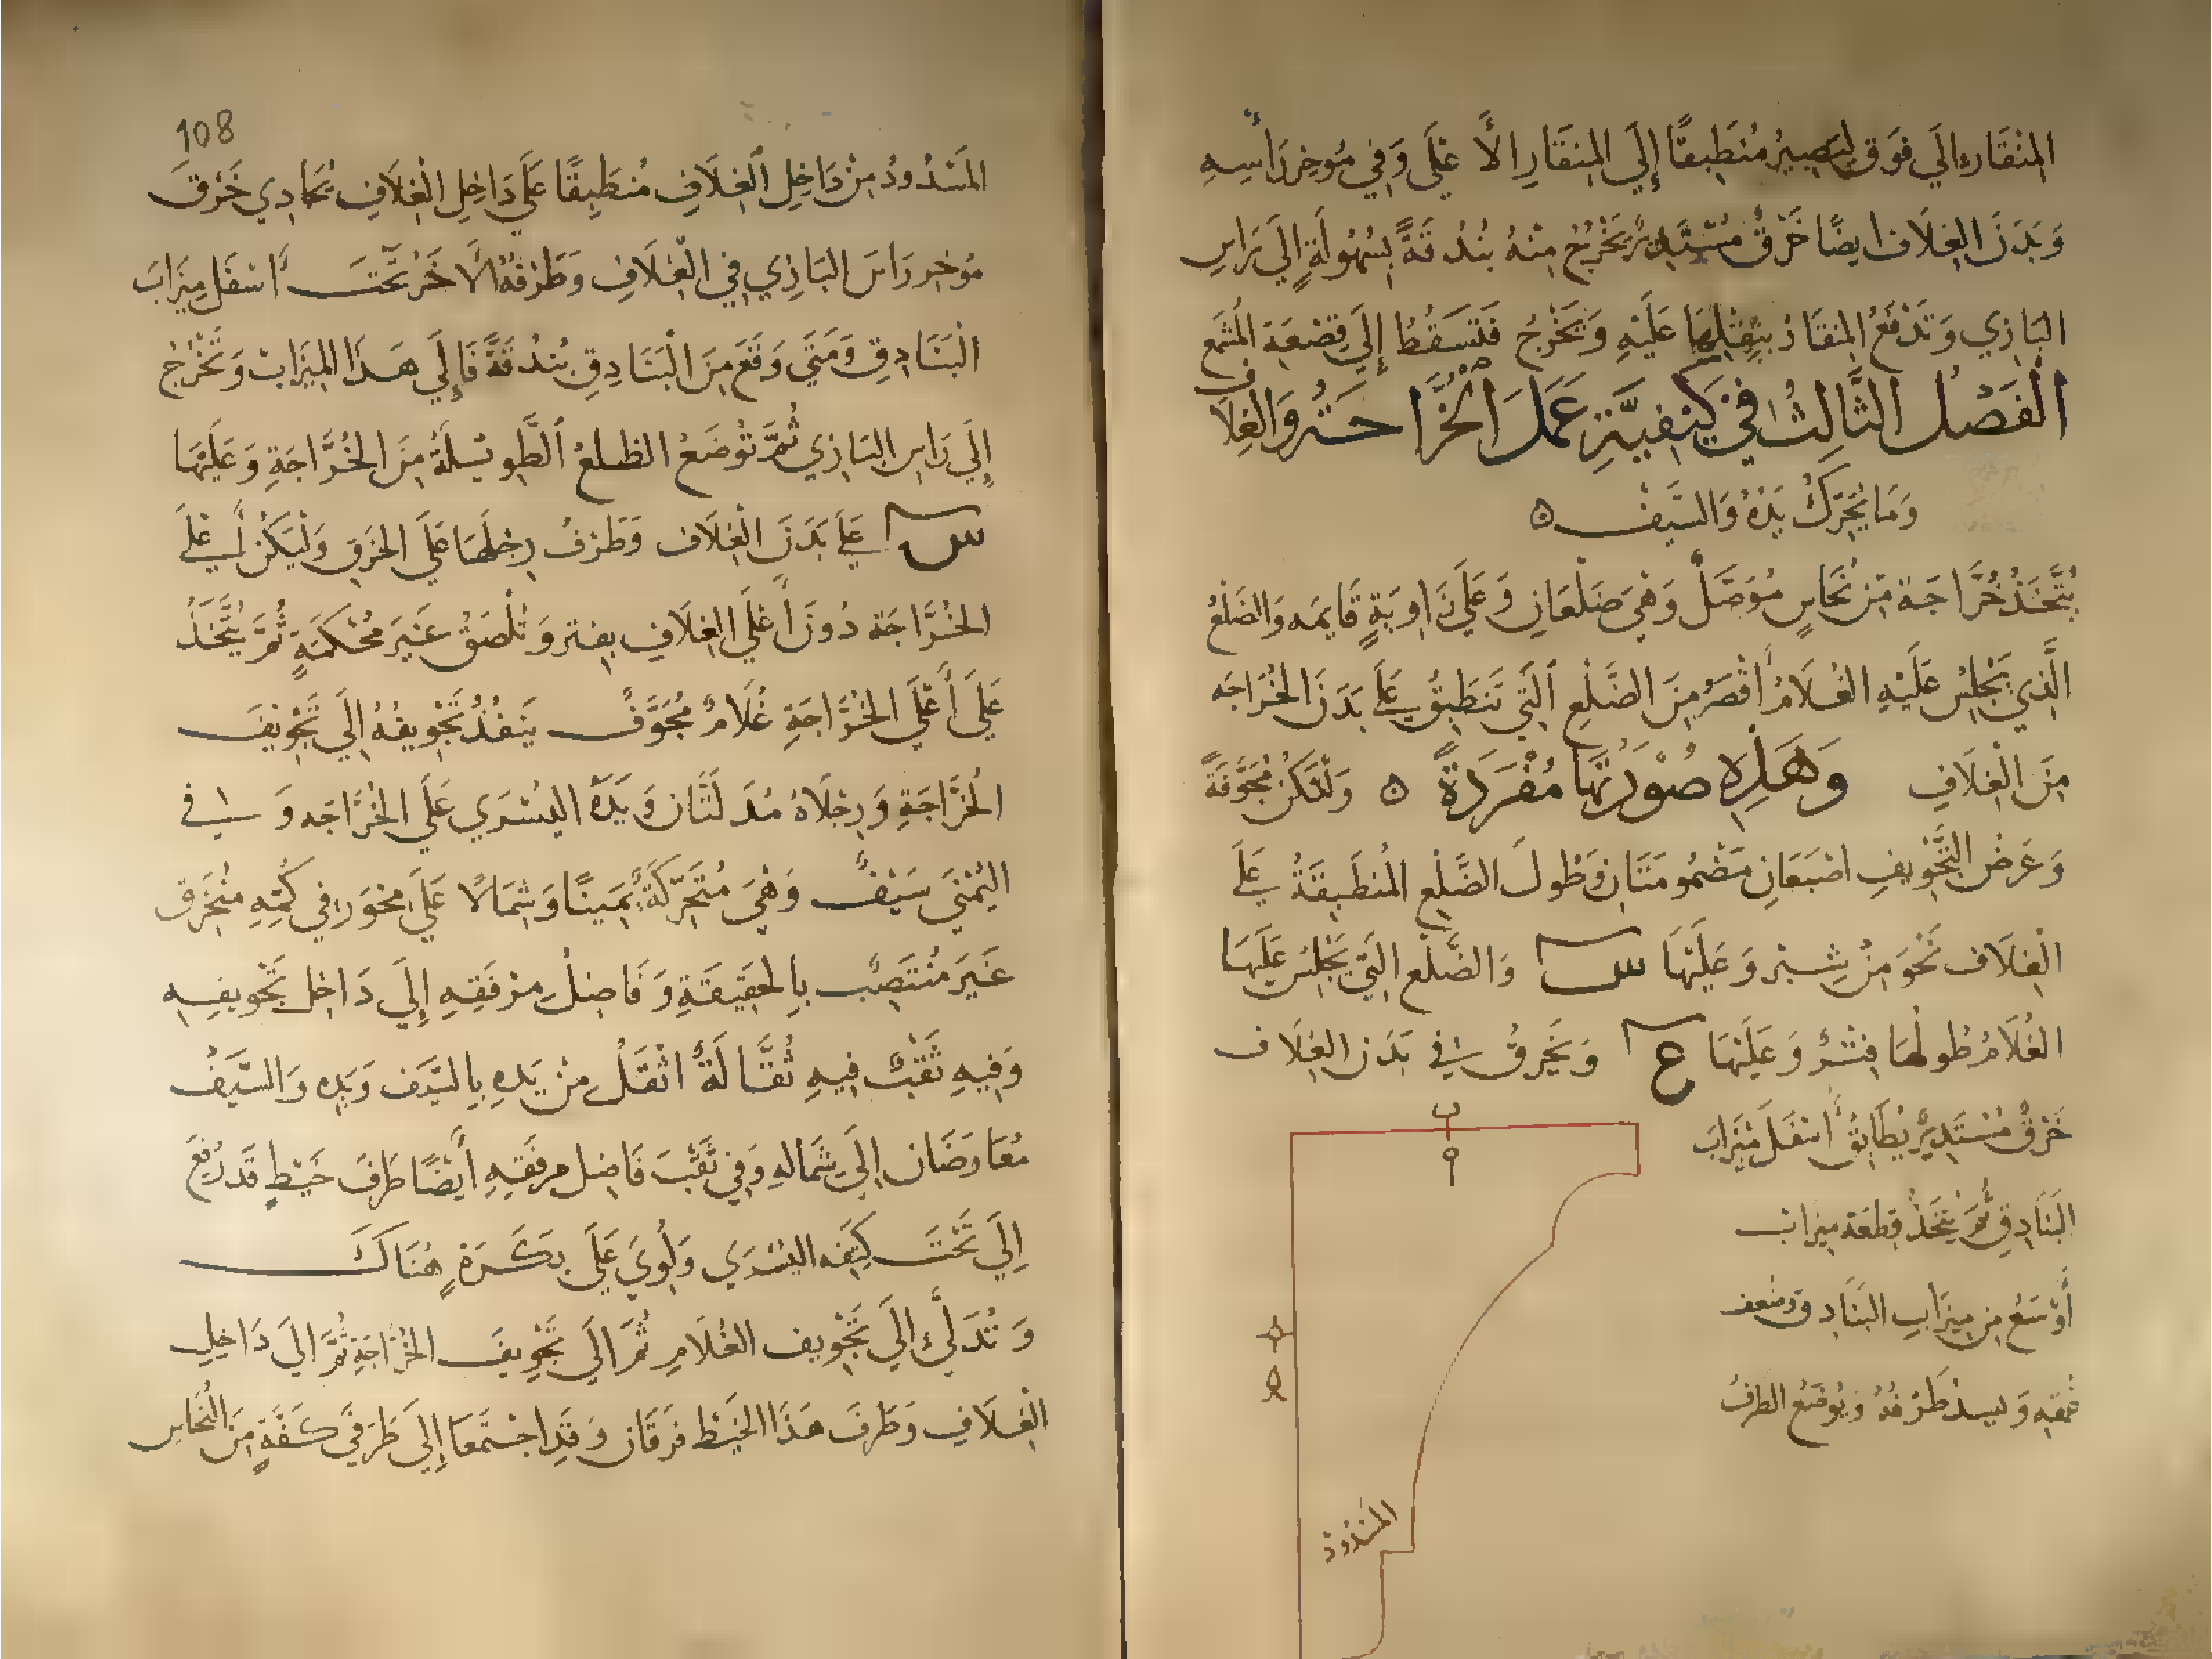 المنقار الى فوق ليصير مُنطَبِقًا إِلَى المِنقَارِ الأَعْلَى وَفي مُوخِر رَأسِهِ
وَبَدَنَ الغِلَاف ايضًا خَرْقٌ مُسْتَدِيرٌ يَخْرُجُ مِنْهُ بُنْدُقَةٌ بِسُهُولَةٍ إِلَى رَاسِ
البَازِي وَتَدْفَعُ المِنقَارَ بِثِقْلِهَا عَلَيْهِ وَتَخْرُجُ فَتَسقُطُ إِلَى قَصْعَةِ الشَمع
الْفَصْل الثَّالِثُ فِي كَيْفِيَّةِ عَمَلَ الْخُرَّاجَةِ وَالغِلَاف
وَمَا يُحَرِّكُ يَدَهُ وَالسَّيْف ه
يُتَّخَذُ خُرَّاجَة مِن نُحَاسٍ مُوَصَّلٌ وَهِيَ ضَلْعَانِ وَعَلَى زَاوِيَةٍ قَايمَه وَالضَلْعُ
الَّذِي يَجْلِسُ عَلَيْهِ الغُلَامُ أَقْصَرُ مِنَ الضَّلْعِ الَّتِي تَنطَبِقُ عَلَى بَدَنَ الخُرَاجَه
مِنَ الْغِلَافِ وَهَذِهِ صُوْرَتُهَا مُفْرَدَةً ه وَلْتَكُنْ مُجَوَّفَةً
وَعَرضُ التَّجْوِيفِ اصْبَعَانِ مَضْمُومَتَانِ وَطُولَ الضَّلْعِ المُنطَبِقَةُ عَلَى
الْغِلَاف نَحْوَ مِنْ شِبْرٍ وَعَلَيْهَا س وَالضَّلْع الَّتِي يَجْلِسُ عَلَيْهَا
الغُلَامُ طُولُهَا فِتْرٌ وَعَلَيْهَا ح وَيُخْرِقُ فِي بَدَن الغِلَاف
خَرْقٌ مُسْتَدِيرٌ يُطَابِقُ أَسْفَلَ مِيْزَابَ
البَنَادِقِ ثُمَّ يتَّخَذُ قِطعَة ميزاب
أَوْسَعُ مِن مِيزَابِ البَنَادِق وضعف
عمقه وَيسد طَرْفُهُ وَيُوضَعُ الطرفُ
ب
المسدود
108
المَسْدُودُ مِنْ دَاخِلِ الغِلَافِ مُنطَبِقًا عَلَى دَاخِلِ الْغِلَافِ يُحَادِي خَرْقَ
مُوخِر رَاسَ البَازِي فِي الْغِلَافِ وَطَرْفُهُ الآخَرُ تَحْتَ أَسْفَل مِيزَابَ
الْبَنَادِقِ وَمَتَى وَقَعَ مِنَ الْبَنَادِقِ بُندُقَةً فَإِلَى هَذَا المِيزَاب وَتَخْرُجُ
إِلَى رَاسِ البَازِي ثُمَّ تُوضَعُ الظلعُ الطَّويلَةُ مِنَ الخُرَّاجَةِ وَعَلَيْهَا
س عَلَى بَدَنَ الْغِلَاف وَطَرْفُ رِجْلِهَا عَلَى الخَرْقِ وَلْيَكُنْ أَعْلَى
الخُرَّاجَة دُونَ أَعْلَى الغِلَافِ بِفِتر وَتُلْصَقُ غَيْرَ مُحْكَمَةٍ ثُمَّ يُتَّخَذُ
عَلَى أَعْلَى الخُرَّاجَةِ غُلَامٌ مُجَوَّفٌ يَنفُذُ تَجْوِيفُهُ إِلَى تَجْوِيفَ
الخُرَّاجَةِ وَرِجْلَاهُ مُدَلَّتَان وَيَدَهُ اليُسْرَى عَلَى الخُرَّاجَه وَفِي
اليُمْنَى سَيْفٌ وَهِيَ مُتَحَرِّكَةٌ يَمِينًا وَشِمَالًا عَلَى مِحْوَر فِي كُمِّهِ مُنْخَرِق
غَيْرَ مُنْتَصِبٍ بِالْحَقِيقَةِ وَفَاضِلُ مِرْفَقِهِ إِلَى دَاخِل تَجْوِيفِهِ
وَفِيهِ ثَقْبٌ فِيهِ ثَقَّالَةٌ اثْقَلُ مِنْ يَدِهِ بِالسَّيف وَيَدِهِ وَالسَّيْفُ
مُعَارِضَانِ إِلَى شمَالِهِ وَفِي ثَقْبَ فَاضِل مرفَقِهِ أَيْضًا طَرفَ خَيْطٍ قَد رُفِعَ
إِلَى تَحْتَ كَتِفِه اليُسْرَي وَلُوِيَ عَلَى بَكَرَةٍ هُنَاكَ
وَتُدَلَّى إِلَى تَجْوِيف الغُلَامِ ثُمَّ إِلَى تَجْوِيفَ الخُرَّاجَةِ ثُمَّ إِلَى دَاخِلِ
الغِلَافِ وَطَرفَ هَذَا الخَيْط فَرقَان وَقَدِ اجْتَمَعَا إِلَى طَرَفَي كَفَّةٍ مِنَ النُّحَاسِ